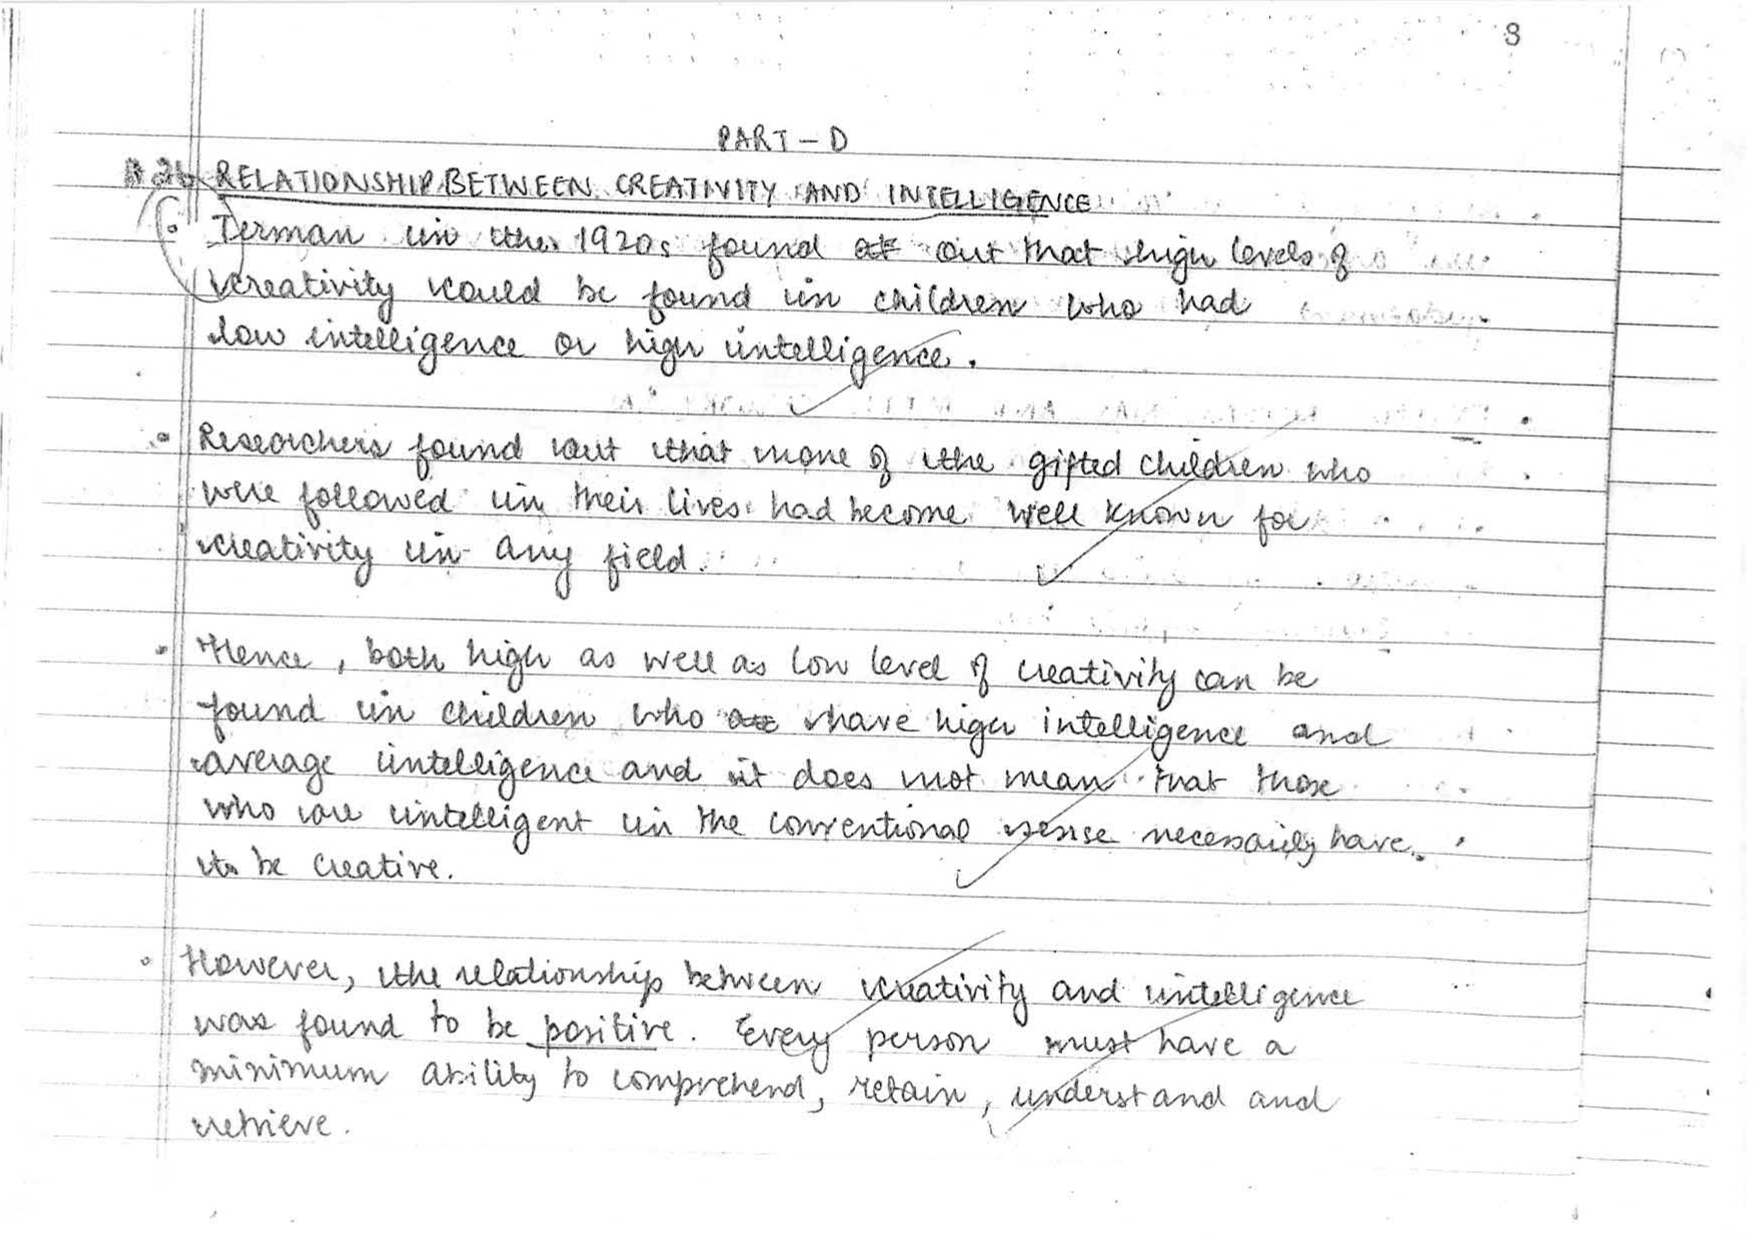 3
PART - D
A.26 RELATIONSHIP BETWEEN CREATIVITY AND INTELLIGENCE
Terman in the 1920s found out that high levels of
creativity could be found in children who had
low intelligence or high intelligence.
Researchers found out that none of the gifted children who
were followed in their lives had become well known for
creativity in any field.
Hence, both high as well as low level of creativity can be
found in children who have high intelligence and
average intelligence and it does not mean that those
who are intelligent in the conventional sense necessarily have
to be creative.
However, the relationship between creativity and intelligence
was found to be positive. Every person must have a
minimum ability to comprehend, retain, understand and
retrieve.